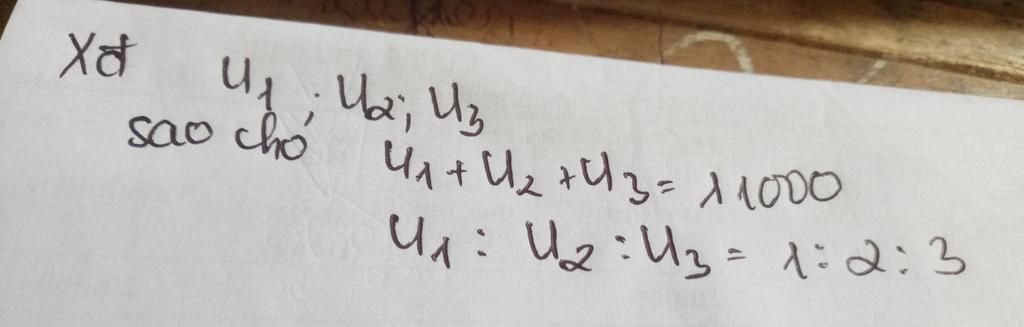 Xđ u1; u2; u3
sao cho
u1 + u2 + u3 = 11000
u1 : u2 : u3 = 1 : 2 : 3